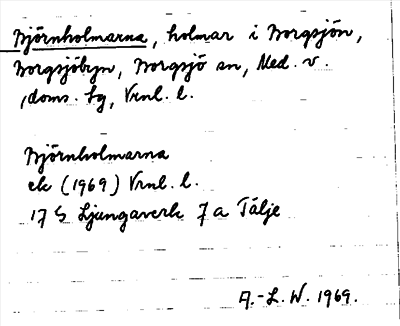 Björnholmarna, holmar i Borgsjön,
Borgsjöbyn, Borgsjö sn, Med. v.
doms. tg, Vrnl. l.
Björnholmarna
ek (1969) Vrnl. l.
17 G Ljungaverk 7 a Tälje
A.-L. W. 1969.